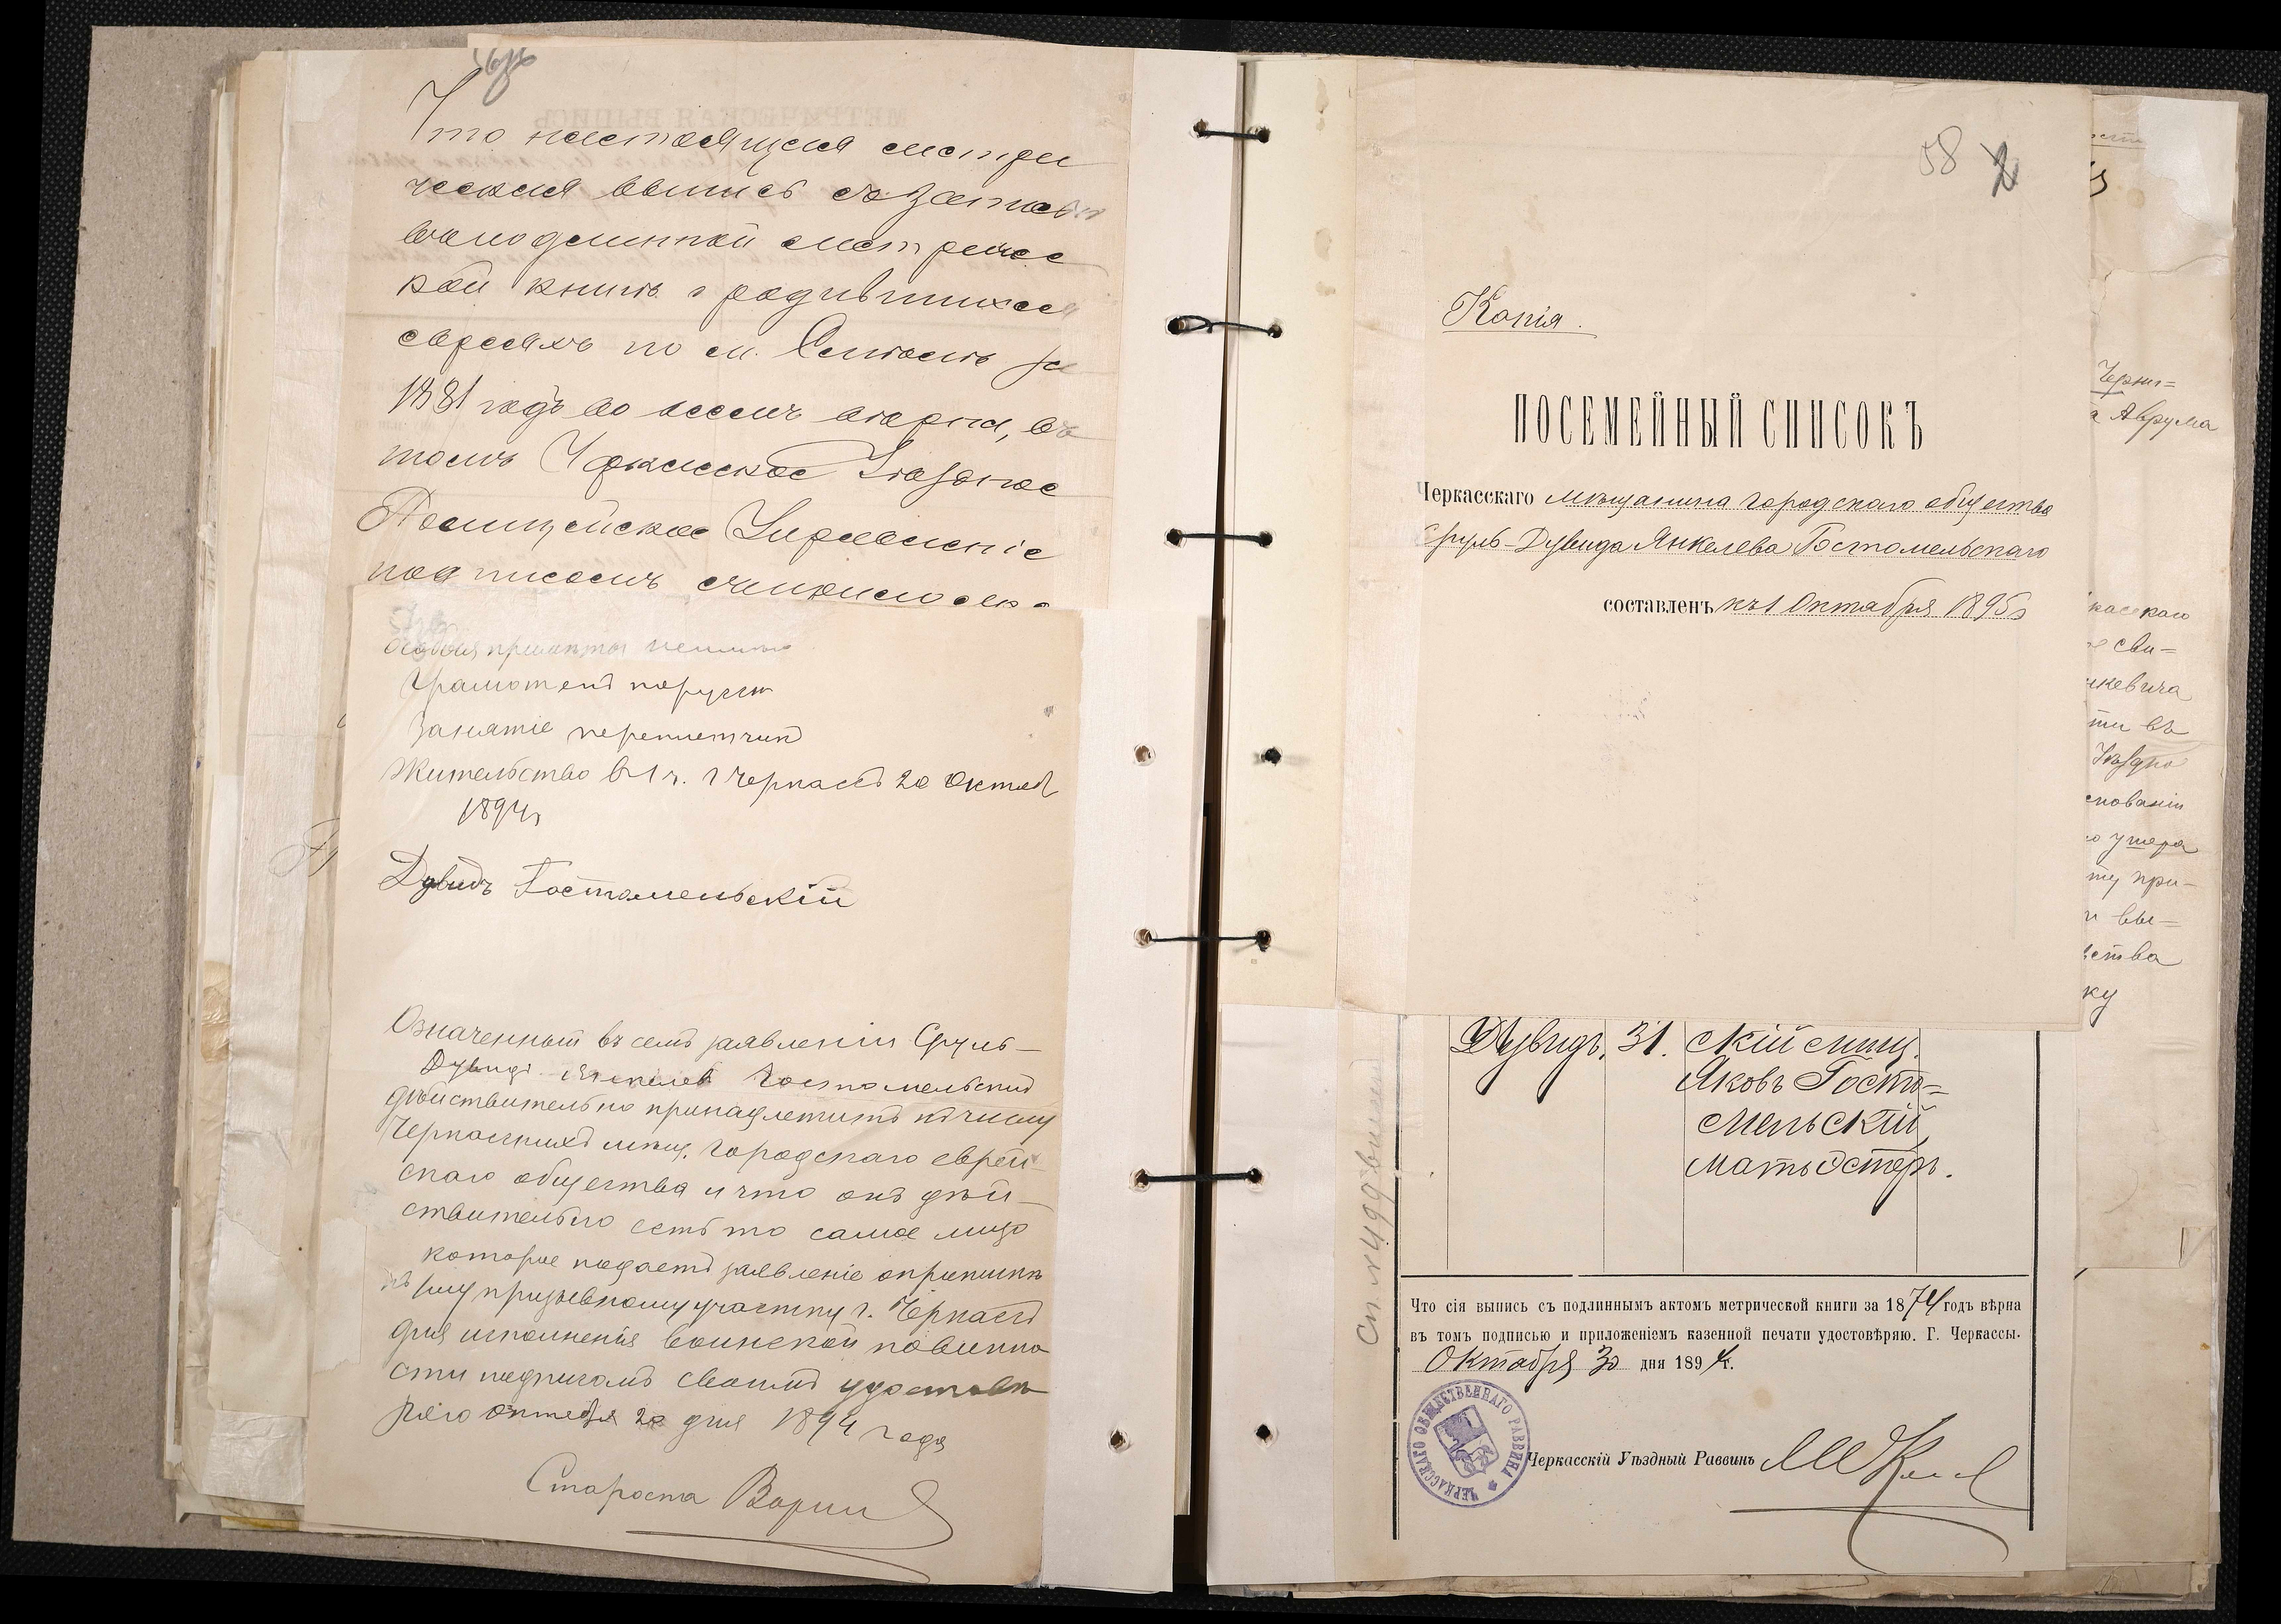 Что настоящая метри
ческая выпись съ записью
въ подлинной метричес
кой книгѣ о родившихся
евреяхъ по м. Смѣлѣ за
1881 годъ во всемъ вѣрна, въ
томъ Черкасское Уѣздное
Полицейское Управленіе
подписомъ
Особыя примѣты
Грамотенъ по русски
Занятіе переплетчикъ
Жительство въ 1 ч. г Черкассъ 20 Октяб
1894 г
Дувидъ Гостомельскій
Означенный въ семъ заявленіи Сруль-
Дувидъ Янкелевъ Гостомельскій
дѣйствительно принадлежитъ къ числу
Черкасскихъ мѣщ. городскаго еврей-
скаго общества и что онъ дѣй-
ствительно есть то самое лицо
которое подаетъ заявленіе о припискѣ
къ призывному участку г. Черкассъ
для исполненія воинской повинно
сти подписомъ своимъ удостовѣ
ряю октября 20 дня 1894 года
Староста
58
Копія.
ПОСЕМЕЙНЫЙ СПИСОКЪ
Черкасскаго мѣщанина городскаго общества
Сруль-Дувида Янкелева Гостомельскаго
составленъ къ 1 Октября 1895 г
Дувидъ. 31. скій мѣщ.
Яковъ Госто-
мельскій,
мать Эстеръ.
Что сія выпись съ подлиннымъ актомъ метрической книги за 1874 годъ вѣрна
въ томъ подписью и приложеніемъ казенной печати удостовѣряю. Г. Черкассы.
Октября 30 дня 1894 г.
ЧЕРКАССКАГО ОБЩЕСТВЕННАГО РАВВИНА
Черкасскій Уѣздный Раввинъ
Аврума
сви-
ти въ
при-
вы-
ства
ку